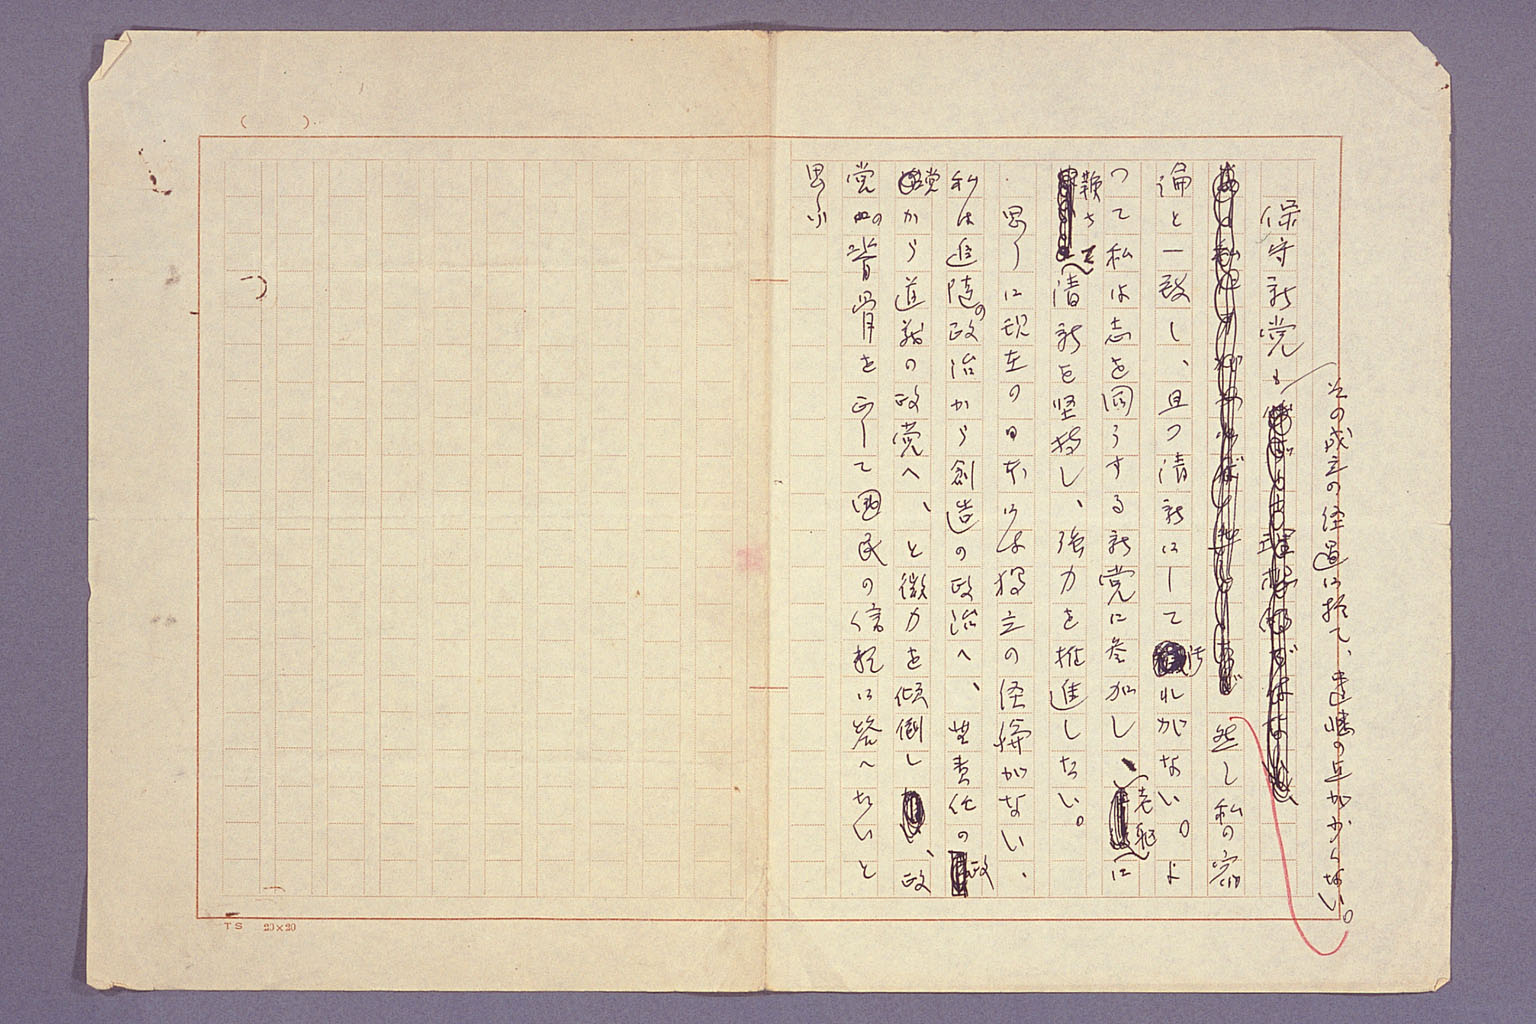 その成立の経過に於て、遺憾の点が少くない。
保守新党も
然し私の宿
論と一致し、且つ清新にして汚れがない。よ
つて私は志を同うする新党に参加し、老躯に
鞭さて清新を堅持し、強力を推進したい。
思ふに現在の日本には独立の経綸がない、
私は追随の政治から創造の政治へ、無責任の政
党から道義の政党へ、と微力を傾倒し、政
党の背骨を正して国民の信頼に答へたいと
思ふ
TS 20×20